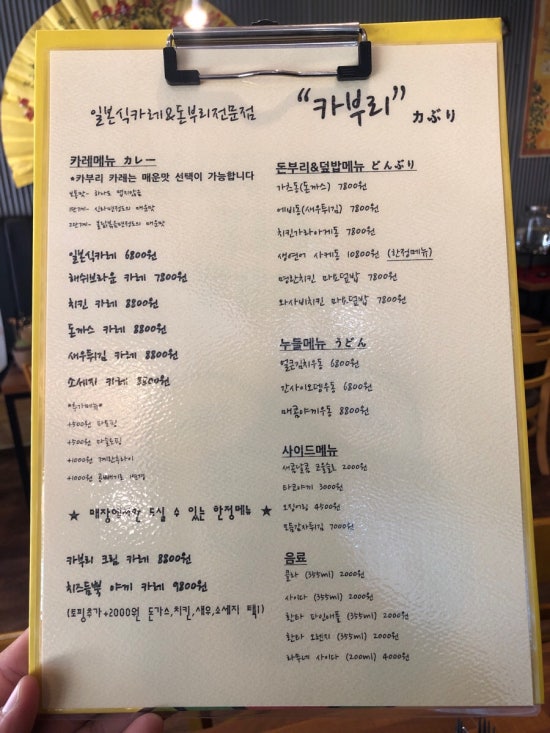 일본식카레&돈부리전문점
"카부리" カぶり
카레메뉴 カレー
*카부리 카레는 매운맛 선택이 가능합니다
보통맛- 하나도 맵지않음
1단계- 신라면정도의 매운맛
2단계- 불닭볶음면정도의 매운맛
일본식카레 6800원
해쉬브라운 카레 7800원
치킨 카레 8800원
돈까스 카레 8800원
새우튀김 카레 8800원
소세지 카레 8800원
*추가메뉴*
+500원
+500원
+1000원 계란후라이
+1000원
★ 매장에서만 드실 수 있는 한정메뉴 ★
카부리 크림 카레 8800원
치즈듬뿍 야끼 카레 9800원
(토핑추가+2000원 돈가스,치킨,새우,소세지 택1)
돈부리&덮밥메뉴 どんぶり
가츠동(돈까스) 7800원
에비동(새우튀김) 7800원
치킨가라아게동 7800원
생연어 사케동 10800원 (한정메뉴)
명란치킨 마요덮밥 7800원
와사비치킨 마요덮밥 7800원
누들메뉴 うどん
얼큰김치우동 6800원
간사이오뎅우동 6800원
매콤야끼우동 8800원
사이드메뉴
새콤달콤 코울슬로 2000원
타코야끼 3000원
오징어링 4500원
모듬감자튀김 7000원
음료
콜라 (355ml) 2000원
사이다 (355ml) 2000원
환타 파인애플 (355ml) 2000원
환타 오렌지 (355ml) 2000원
라무네 사이다 (200ml) 4000원